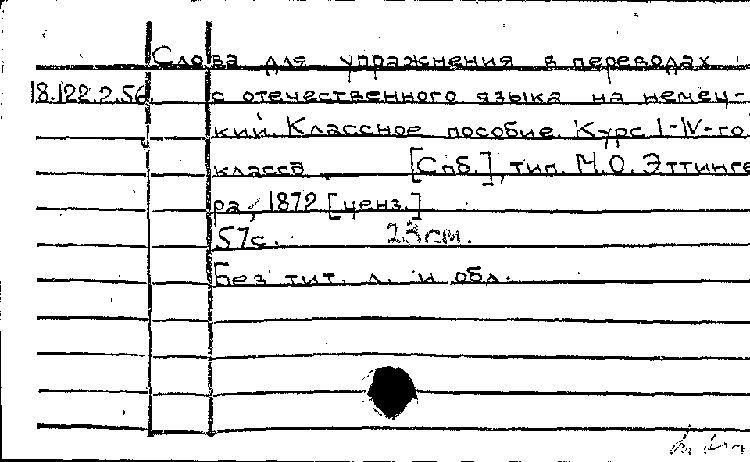 Слова для упражнения в переводах
18.122.2.56 с отечественного языка на немец-
кий. Классное пособие. Курс I-IV-го
класса. [Спб.], тип. М.О. Эттинге
ра, 1872 [ценз.]
57 с. 23 см.
Без тит. л. и обл.